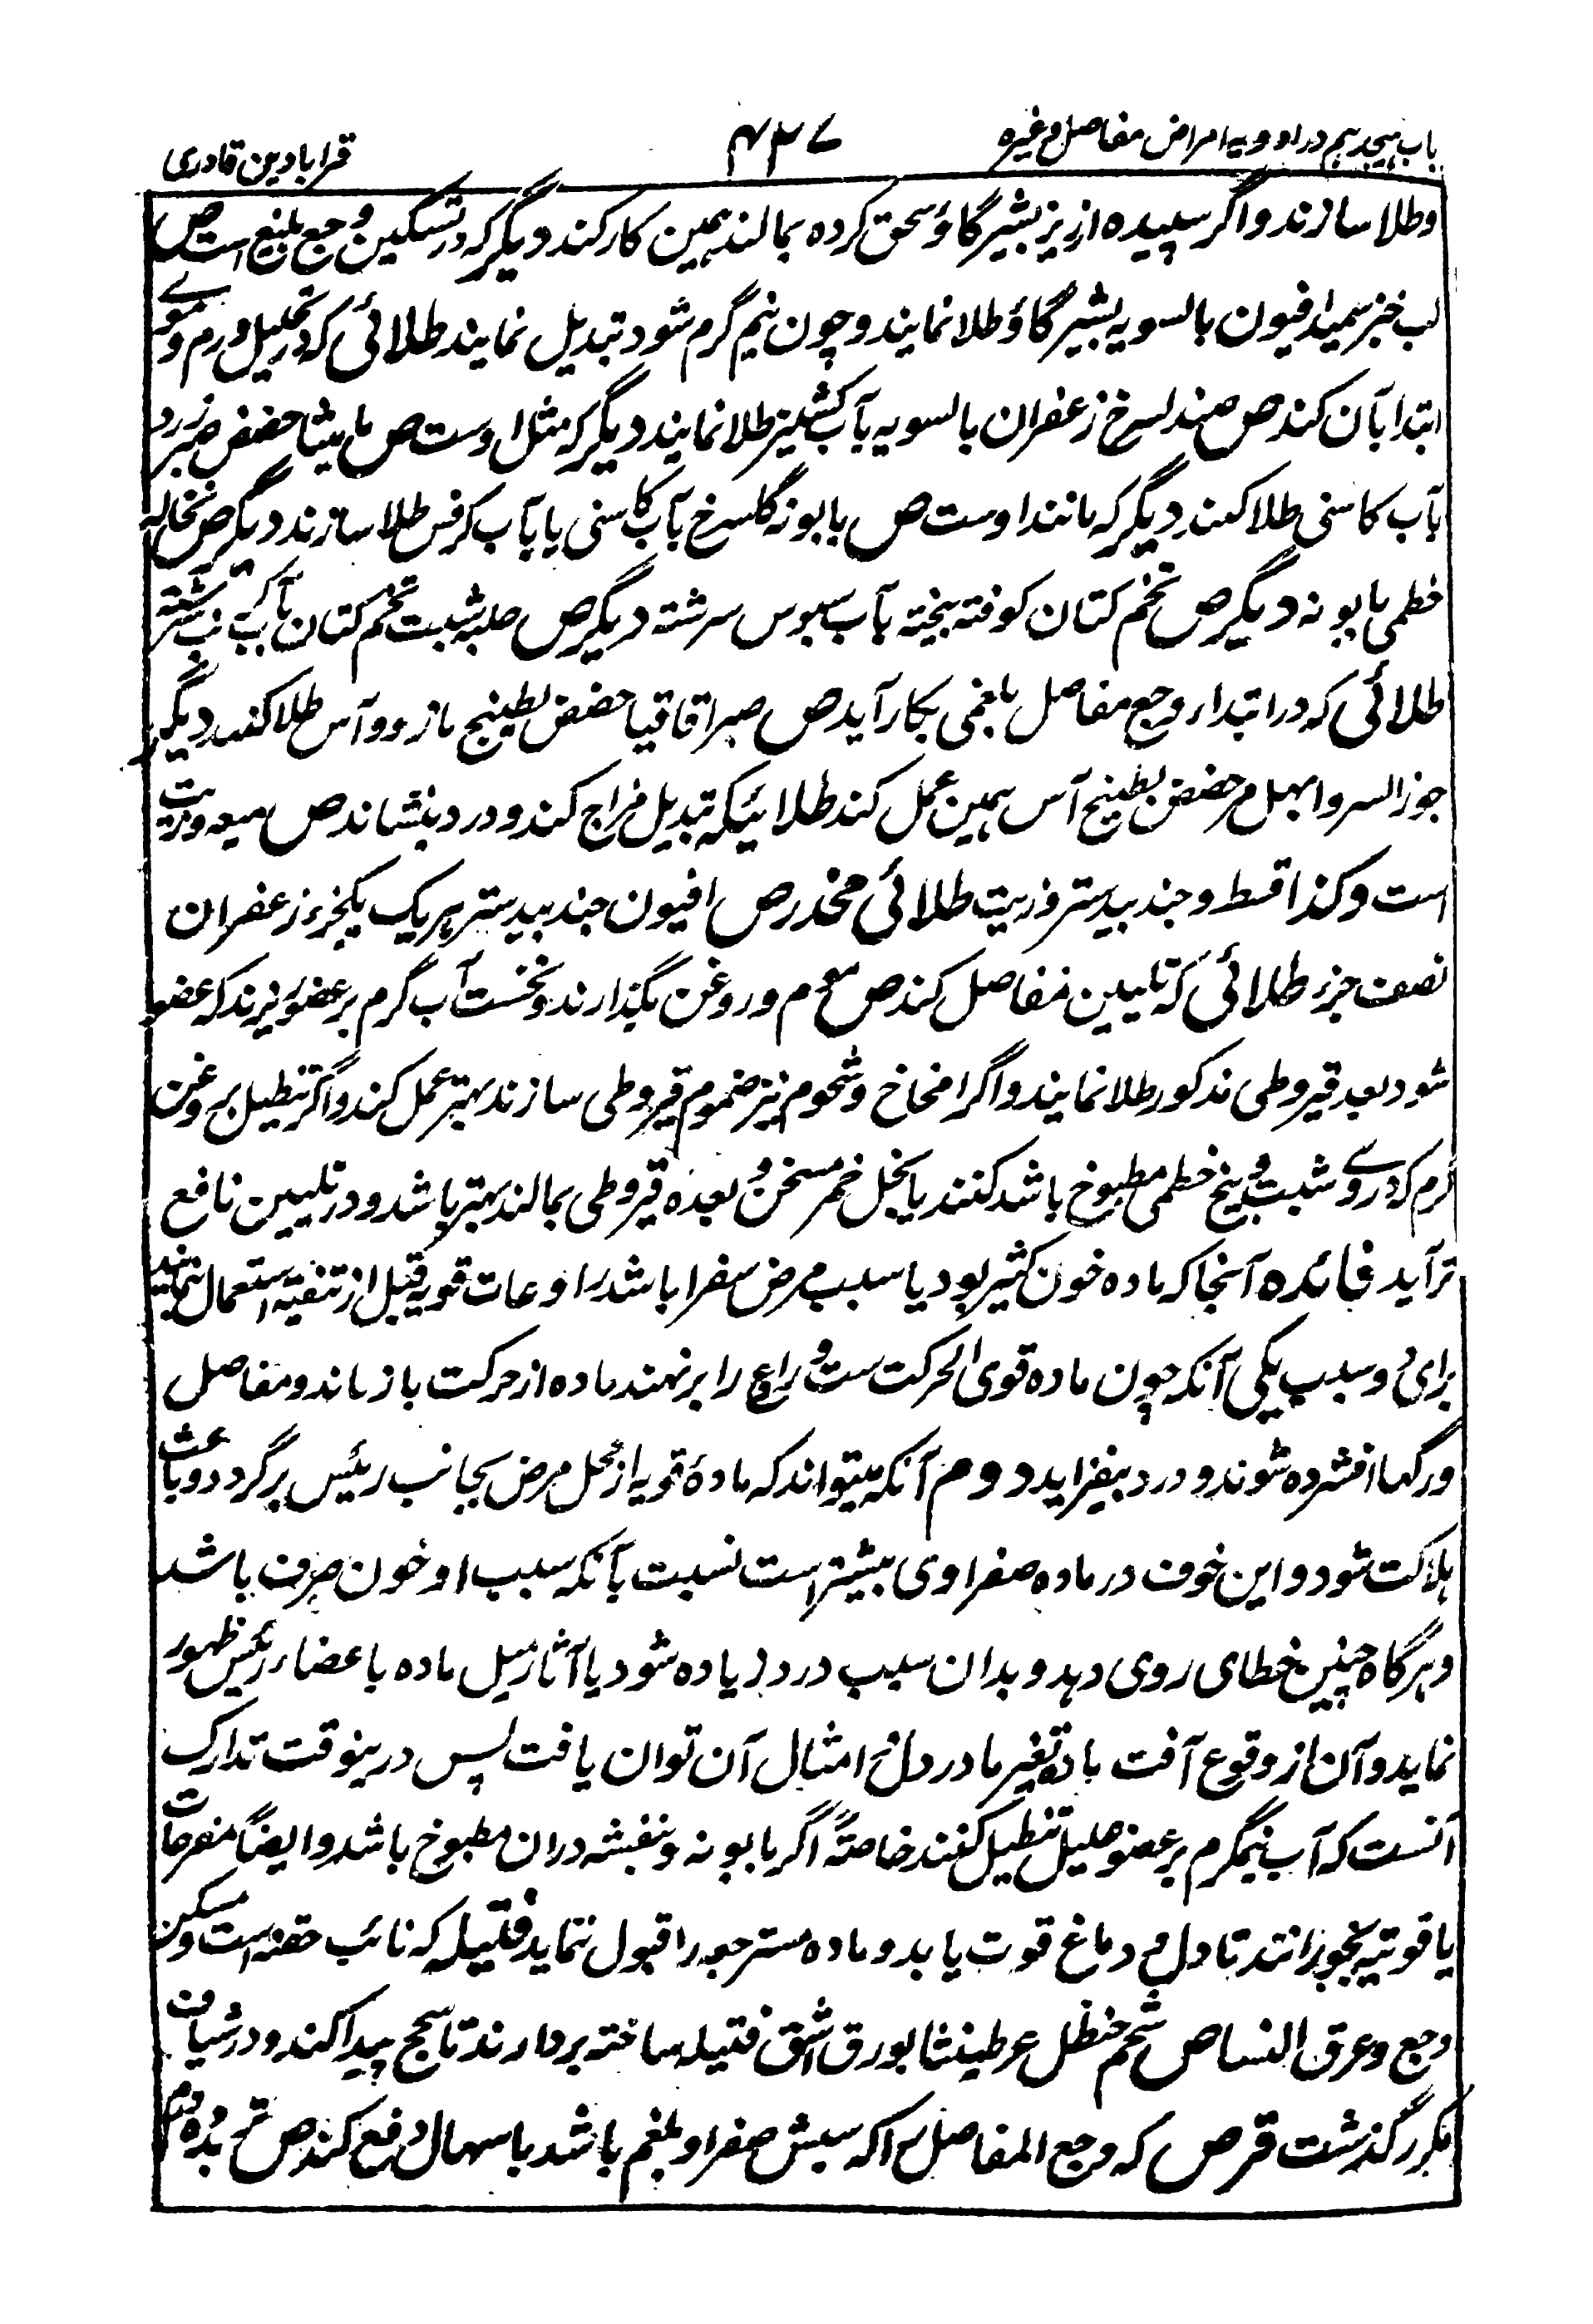 باب هیجدهم در ادویه امراض مفاصل وغیره ۴۳۷ قرابادین قادری
وطلا سازند واگر سپیده ارزیز بشیر گاؤ سحق کرده بمالند همین کار کند دیگر که در تسکین وجع بلیغ است ص
لب خبز سمید افیون بالسویه بشیر گاؤ طلا نمایند وچون نیم گرم شود تبدیل نمایند طلائی که در تحلیل ورم دموے
ابتدا بآن کند ص صندل سرخ زعفران بالسویه بآب کشنیز طلا نمایند دیگر که مثل اوست ص مامیثا حضض صبر زرد
بآب کاسنی طلا کنند دیگر که مانند اوست ص بابونه گلسرخ بآب کاسنی یا بآب کرفس طلا سازند دیگر ص نخاله
خطمی بابونه دیگر ص تخم کتان کوفته بیخته بآب سبوس سرشته دیگر ص حلبه شبت تخم کتان بآب کرنب سرشته
طلائی که در ابتداء وجع مفاصل بلغمی بکار آید ص صبر اقاقیا حضض بطبیخ مازو وآس طلا کنند دیگر
جوز السرو ابهل مر حضض بطبیخ آس همین عمل کند طلائیکه تبدیل مزاج کند ودرد بنشاند ص میعه وزیت
است وکذا قسط وجندبیدستر وزیت طلائی مخدر ص افیون جندبیدستر هریک یکجزء زعفران
نصف جزء طلائی که تلیین مفاصل کند ص موم وروغن بگدازند ونخست آب گرم بر عضو بریزند که عضو
شود بعد قیروطی مذکور طلا نمایند واگر امخاخ وشحوم نیز مضموم قیروطی سازند بهتر عمل کند واگر تنطیل بروغن
گرم که دروے شبت وبیخ خطمی مطبوخ باشد کنند یا بخل خمر مسخن وبعده قیروطی بمالند بهتر باشد ودر تلیین نافع
تر آید فائده آنجا که ماده خون کثیر بود یا سبب مرض صفرا باشد رادعات قویه قبل از تنقیه استعمال ننمایند
برای دو سبب یکی آنکه چون ماده قوی الحرکت ست ورادع را برنهند ماده از حرکت باز ماند ومفاصل
ورگها افشرده شوند ودرد بیفزاید دوم آنکه میتواند که مادهٔ قویه از محل مرض بجانب رئیس برگردد وباعث
هلاکت شود واین خوف در ماده صفراوی بیشتر است نسبت بآنکه سبب او خون صرف باشد
وهرگاه چنین خطای روی دهد وبدان سبب درد زیاده شود یا آثار میل ماده باعضاء رئیس ظهور
نماید وآن از وقوع آفت یا تغیر ما در دل وامثال آن توان یافت پس درینوقت تدارک
آنست که آب نیمگرم بر عضو علیل تنطیل کنند خاصةً اگر بابونه وبنفشه دران مطبوخ باشد وایضاً مفرحات
یاقوتیه بخورانند تا دل ودماغ قوت یابد وماده مسترجعه را قبول ننماید فتیله که نائب حقنه است ومسکن
وجع وعرق النسا ص شحم حنظل عرطنیثا بورق اشق فتیله ساخته بردارند تا سحج پیدا کند ودر شیافت
مکرر گذشت قرص که وجع المفاصل را که سببش صفرا وبلغم باشد باسهال دفع کند ص تربد ده درم